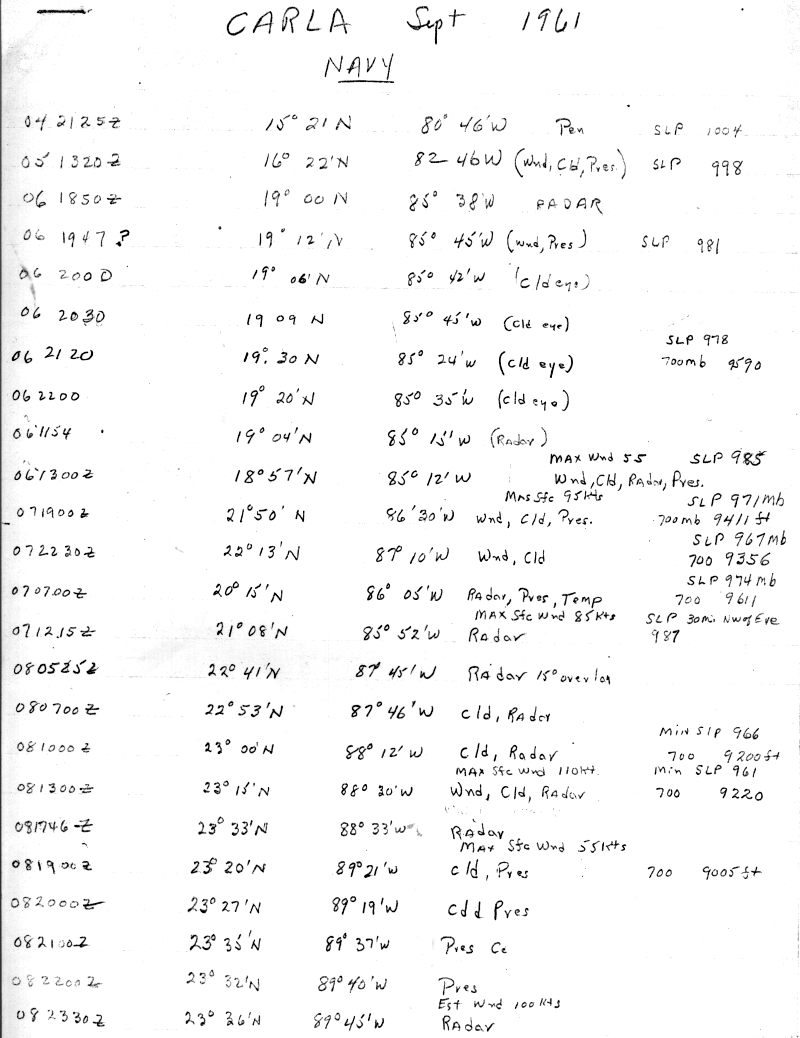 CARLA Sept 1961
NAVY
04 2125Z 15° 21 N 80° 46'W Pen SLP 1004
05 1320Z 16° 22'N 82-46W (Wnd, Cld, Pres.) SLP 998
06 1850Z 19° 00 N 85° 38'W RADAR
06 1947 ? 19° 12'N 85° 45'W (Wnd, Pres) SLP 981
06 2000 19° 06'N 85° 42'W (cld eye)
06 2030 19 09 N 85° 45'W (cld eye)
SLP 978
06 2120 19° 30 N 85° 24'W (cld eye) 700mb 9590
06 2200 19° 20'N 85° 35'W (cld eye)
061154 19° 04'N 85° 15'W (Radar)
MAX Wnd 55 SLP 985
061300Z 18°57'N 85° 12'W Wnd, Cld, RAdar, Pres.
Sfc 95kts SLP 971Mb
071900Z 21°50' N 86°30'W Wnd, Cld, Pres. 700mb 9411 ft
SLP 967Mb
072230Z 22°13'N 87° 10'W Wnd, Cld 700 9356
SLP 974Mb
070700Z 20° 15'N 86° 05'W RAdar, Pres, Temp 700 9611
MAX Sfc Wnd 85kts SLP 30mi NW of Eye
071215Z 21° 08'N 85° 52'W RAdar 987
080525Z 22° 41'N 87° 45'W RAdar 15° over
080700Z 22° 53'N 87° 46'W Cld, RAdar
Min SLP 966
081000Z 23° 00'N 88° 12' W Cld, Radar 700 9200ft
MAX Sfc Wnd 110kt. Min SLP 961
081300Z 23° 15'N 88° 30'W Wnd, Cld, RAdar 700 9220
081746Z 23° 33'N 88° 33'W RAdar
MAX Sfc Wnd 55kts
081900Z 23° 20'N 89°21'W Cld, Pres 700 9005ft
082000Z 23° 27'N 89° 19'W Cdd Pres
082100Z 23° 35'N 89° 37'W Pres Ce
082200Z 23° 32'N 89° 40'W Pres
Est Wnd 100kts
082330Z 23° 36'N 89° 45'W RAdar